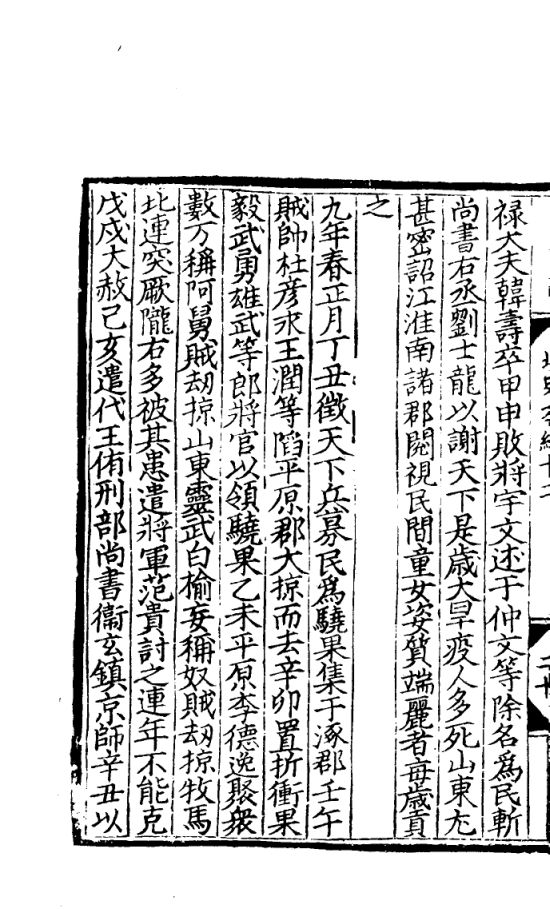 祿大夫韓壽卒甲申敗將宇文述于仲文等除名爲民斬
尚書右丞劉士龍以謝天下是歲大旱疫人多死山東尤
甚密詔江淮南諸郡閱視民間童女姿質端麗者每歲貢
之
九年春正月丁丑徵天下兵募民爲驍果集于涿郡壬午
賊帥杜彥永王潤等䧟平原郡大掠而去辛卯置折衝果
毅武勇雄武等郎將官以領驍果乙未平原李德逸聚衆
數万稱阿舅賊刼掠山東靈武白榆妄稱奴賊刼掠牧馬
北連突厥隴右多被其患遣將軍范貴討之連年不能克
戊戍大赦己亥遣代王侑刑部尚書衞玄鎮京師辛丑以